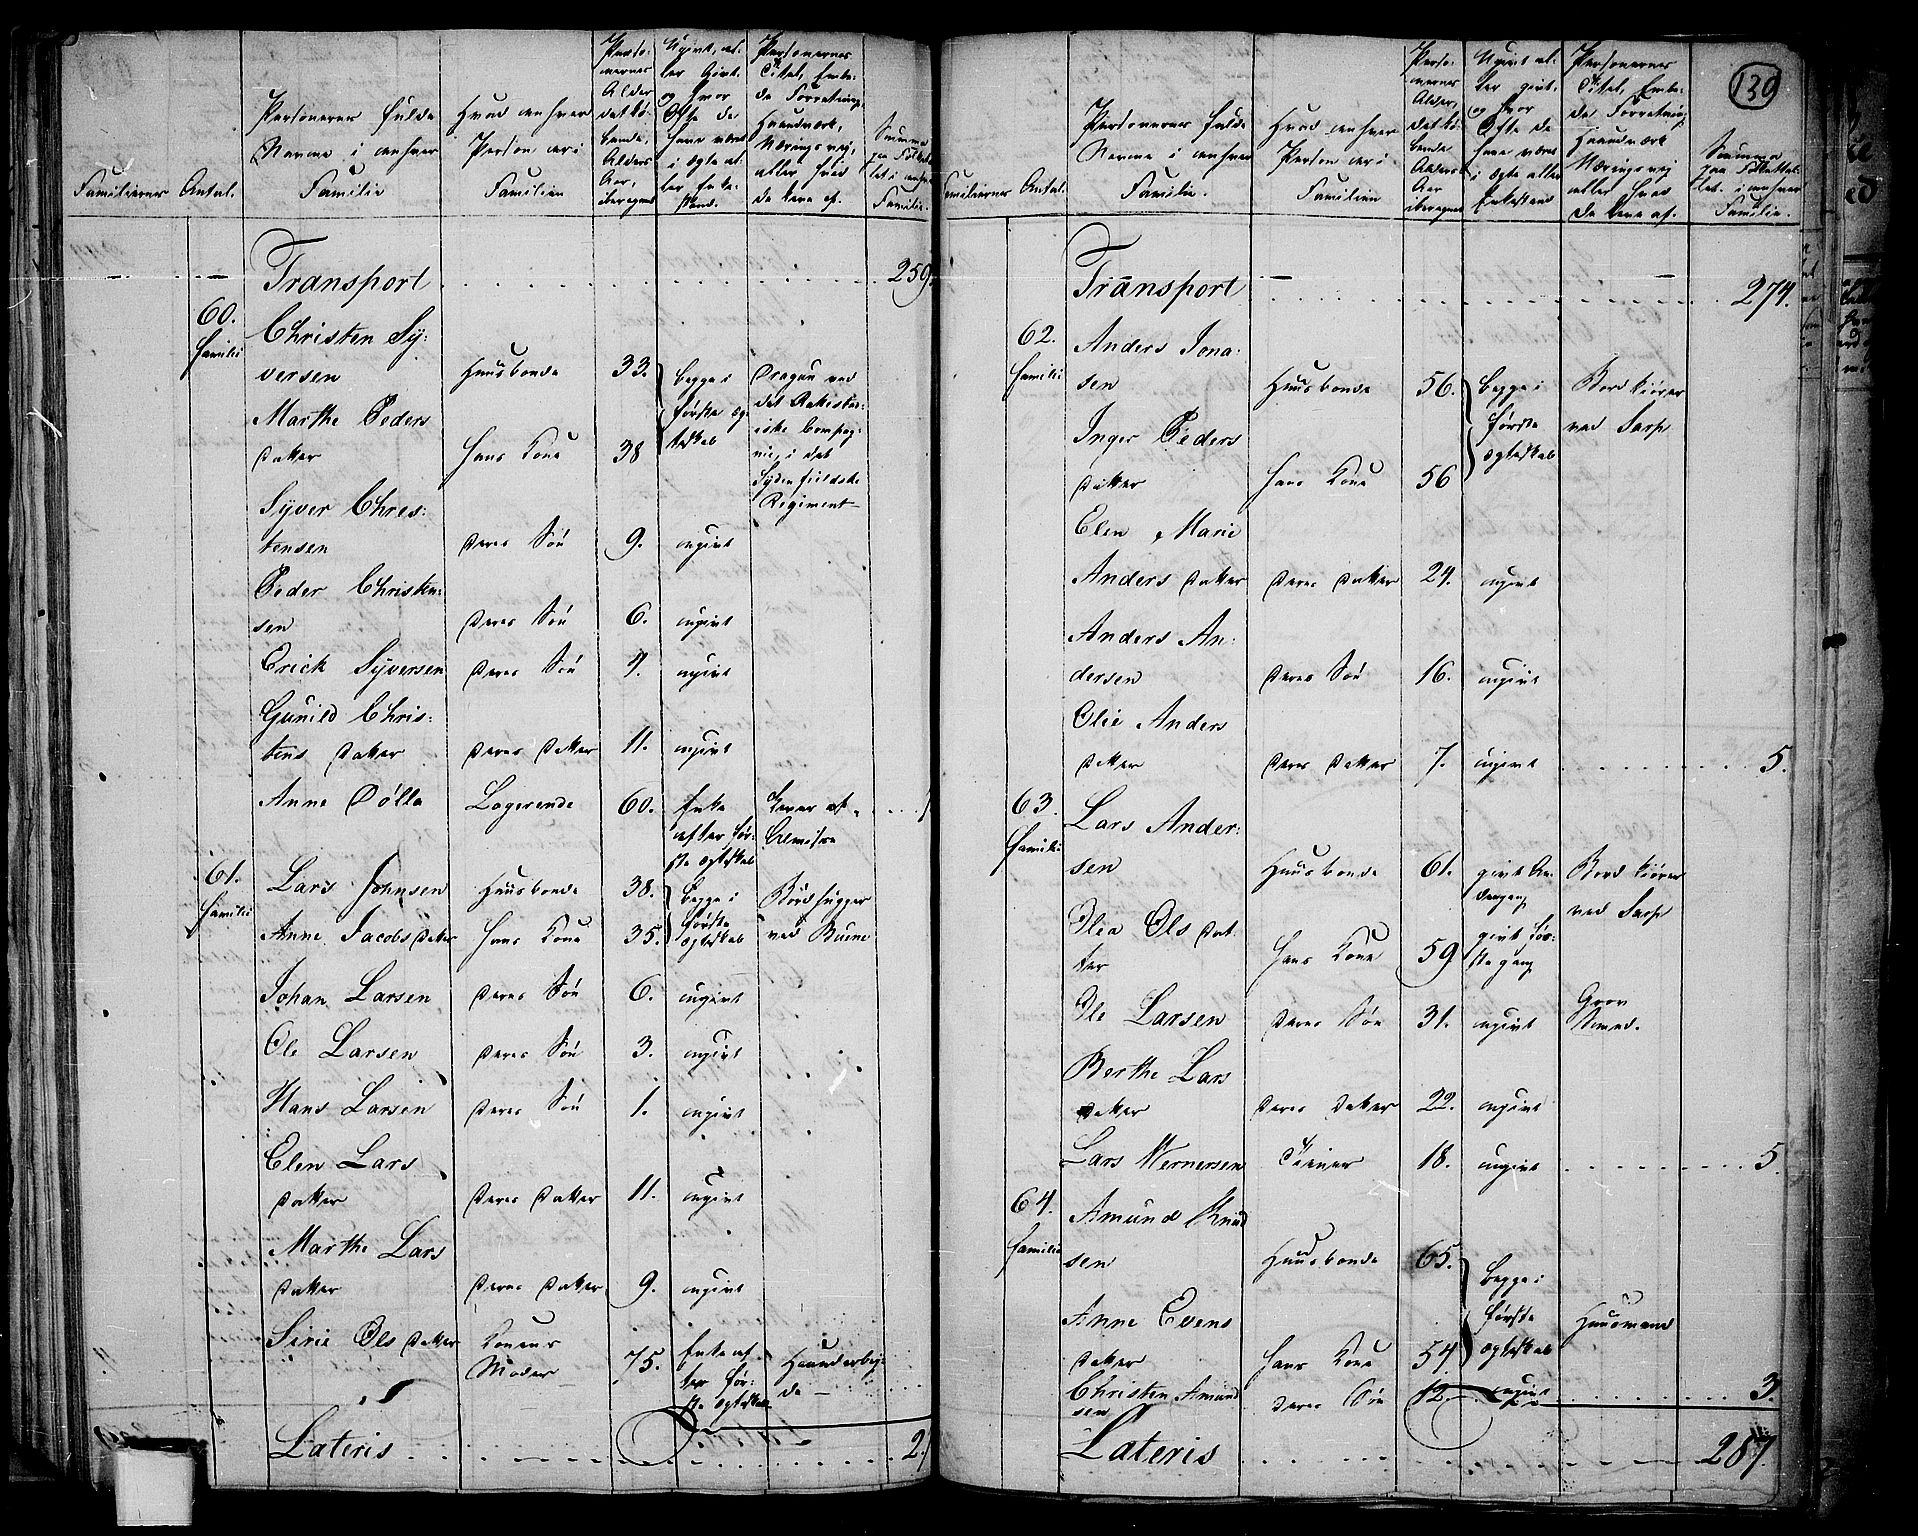 Familiernes
Antal.
Personernes fulde
Navne i enhver
Familie
Hvad enhver
Person er i
Familien
Perso-
nernes
Alder
det lø-
bende
Alders
Aar,
iberegnet
Ugivt, el-
ler Givt.
og hvor
Ofte de
have været
i Ægte el-
ler Enke-
stand.
Personernes
Titel, Embe-
de Forretning,
Haandværk,
Næringsvej,
eller hvad
de leve af.
Summa
paa Folketal-
let i enhver
Familie.
Transport 259.
60. Familie
Christen Sÿ-
versen Huusbonde 33. begge i første Eg-
teskab
Dragon ved
det Rakkestad-
ske Compag-
nie, i det
Sydenfieldske
Regiment
Marthe Peders
Datter hans Kone 38
Sÿver Chris-
tensen deres Søn 9. ugivt
Peder Christen-
sen deres Søn 6. ugivt
Erick Sÿversen deres Søn 4. ugivt
Gunild Chris-
tens Datter deres Datter 11. ugivt
Anne Logerende 60. Enke
efter før-
ste Egteskab
Lever af
Almisse
61. Familie
Lars Johnsen Huusbonde 38. begge i
første
Egteskab
Bordhugger
ved
Anne Jacobs Datter hans Kone 35.
Johan Larsen deres Søn 6. ugivt
Ole Larsen deres Søn 3. ugivt
Hans Larsen deres Søn 1. ugivt
Elen Lars
Datter deres Datter 11. ugivt
Marthe Lars
Datter deres Datter 9. ugivt
Sirie Ols Datter Konens
Moder 75. Enke ef-
ter før-
ste Egteskab
Haandarbej-
de
Lateris 2
130
Familiernes
Antal.
Personernes fulde
Navne i enhver
Familie.
Hvad enhver
Person er i
Familien
Perso-
nernes
Alder,
det lø-
bende
Alders
Aar
iberegnet
Ugivt el-
ler givt.
og hvor
Ofte de
have været
i Egte eller
Enkestand
Personernes
Titel, Embe-
de Forretning
Haandværk
Næringsvej
eller hvad
de leve af.
Summa
paa Folketal-
let i enhver
Familie.
Transport 274.
62. Familie
Anders Jona-
sen Huusbonde 56. begge i
første
Egteskab
Bord kiører
ved Sarp
Inger Peders
Datter hans Kone 56
Elen Marie
Anders Datter deres Datter 24. ugivt
Anders An-
dersen deres Søn 16. ugivt
Olie Anders
Datter deres Datter 7. ugivt 5.
63. Familie
Lars Ander-
sen Huusbonde 61. givt An-
dengang
Bord kiører
ved Sarp
Olea Ols Dat-
ter hans Kone 59 givt før-
ste gang
Ole Larsen deres Søn 31. ugivt Grov
Smed.
Berthe Lars
Datter deres Datter 22. ugivt
Lars Wernersen Tiener 18. ugivt 5.
64. Familie
Amund Knud
sen Huusbonde 65. begge i
første
Egteskab
Huusmand
Anne Evens
Datter hans Kone 54
Christen Amund
sen deres Søn 12. ugivt 3.
Lateris 287